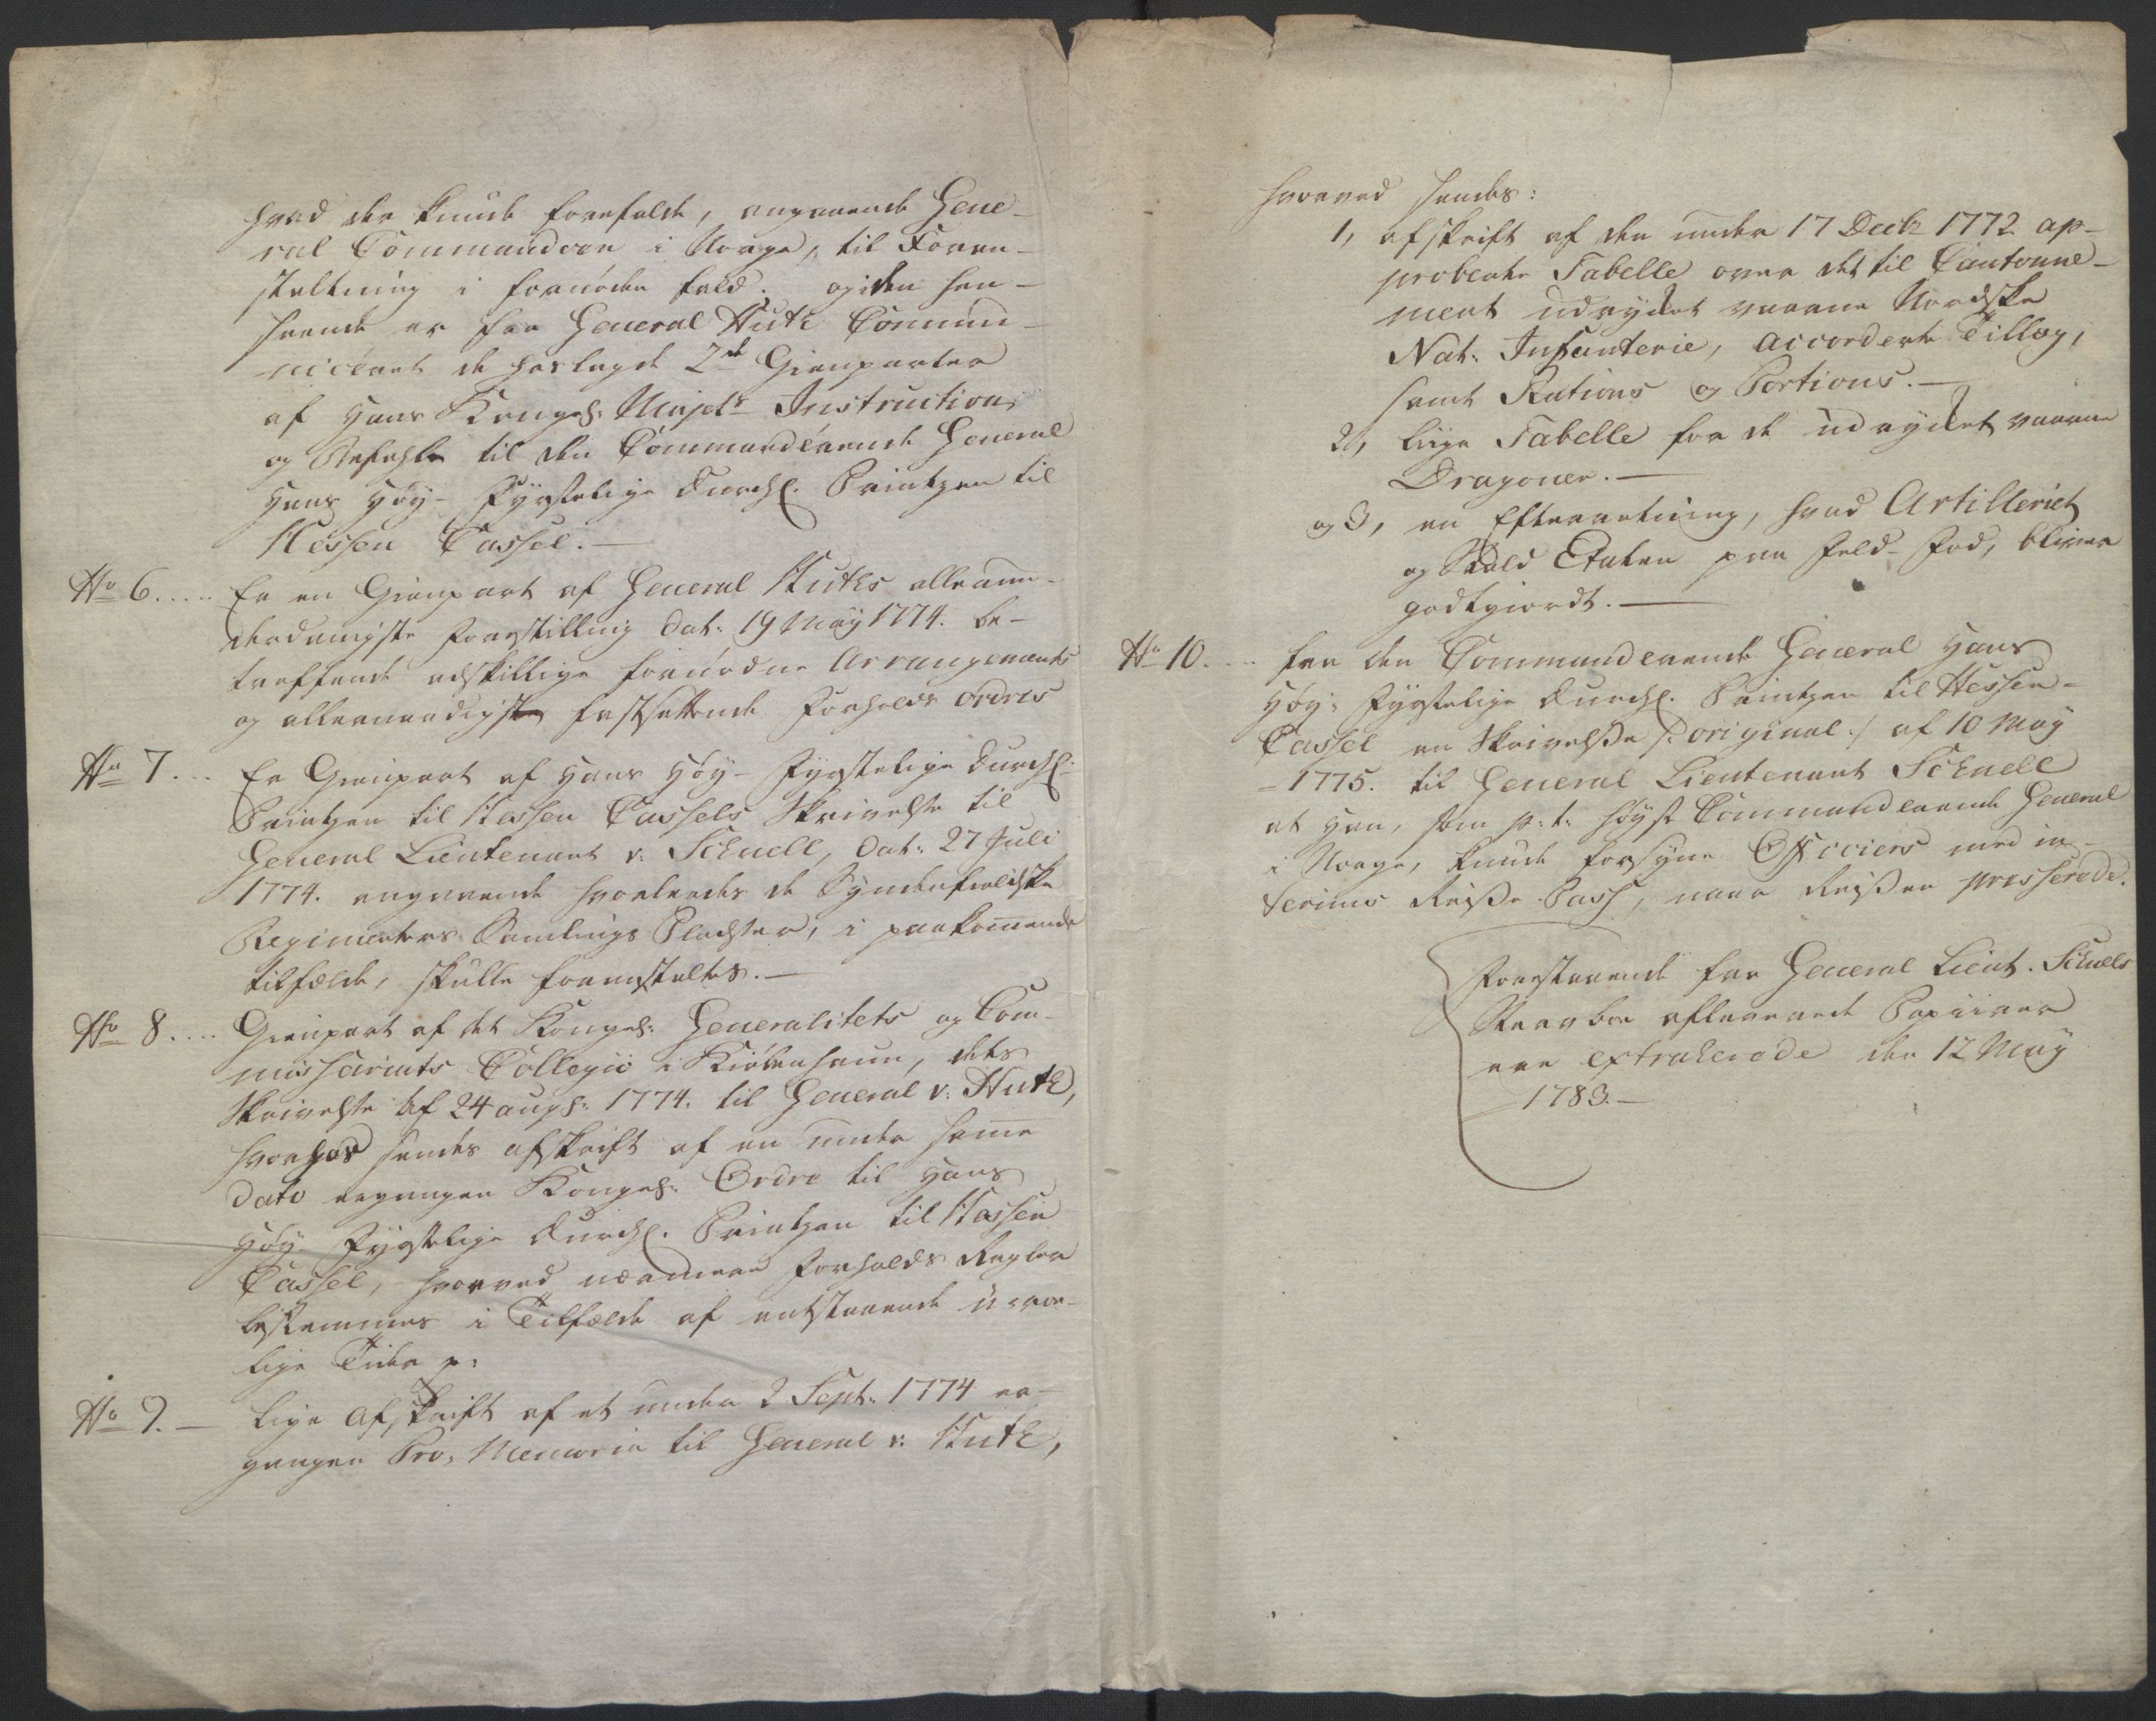 hvad der kunde forefalde, angaaende Gene-
ral Commandoen i Norge, til Foran-
staltning i fornøden fald. og i den hen-
seende er fra General Huth Commun-
niceret de hoslagde 2de Gienparter
af Hans Kongel: Majets Instruction
og Befahle til den Commanderende General
Hans Høy-Fyrstelige Durchl. Printzen til
Hessen Cassel.—
No 6..... Er en Gienpart af General Huths allerun-
derdanigste Forestilling dat: 19 May 1774. be-
treffende adskillige fornødne Arrangements
og allernaadigste fastsættende Forholds Ordres
No 7... Er Gienpart af Hans Høy-Fyrstelige Durchl:
Printzen til Hessen Cassels Skrivelse til
General Lieutenant v: Schnell, dat: 27 Juli
1774. angaaende hvorledes de Syndenfieldske
Regimenters Samlings Pladser, i paakommende
tilfælde, skulle foranstaltes.—
No 8.... Gienpart af det Kongel: Generalitets og Com-
missariats Collegii i Kiøbenhavn, dets
Skrivelse af 24 aug: 1774. til General v: Huth,
hvorhos sendes afskrift af en under samme
Dato ergangen Kongel: Ordre til Hans
Høy-Fyrstelige Durchl. Printzen til Hessen
Cassel, hvorved nærmere Forholds Regler
bestemmes i Tilfælde af entstaaende uroe-
lige Tider p:
No 9.— Lige Afskrift af et under 2 Sept: 1774 er-
gangen Pro, Memoria til General v: Huth,
hvorved sendes:
1, afskrift af den under 17 Decbr 1772 ap-
proberte Tabelle over det til Cantonne-
ment udrycket værende Nordske
Nat: Infanterie, accorderte Tillæg,
samt Rations og Portions.—
2, liige Tabelle for de udrycket værende
Dragoner.—
og 3, en Efterretning, hvad Artilleriet
og Etaten paa Feld-Fod, bliver
godtgiordt.—
No 10.... fra den Commanderende General Hans
Høy-Fyrstelige Durchl. Printzen til Hessen-
Cassel en Skrivelse /: original :/ af 10 May
1775. til General Lieutenant Schnell
at Han, som p: t: høyst Commanderende General
i Norge, kunde forsyne Officiers med in-
terims Reise-Pass, naar Reisen presserede.
Forestaaende fra General Lieut. Schnells
Stervboe afleverede Papiirer
ere extraherede den 12 May
1783.—